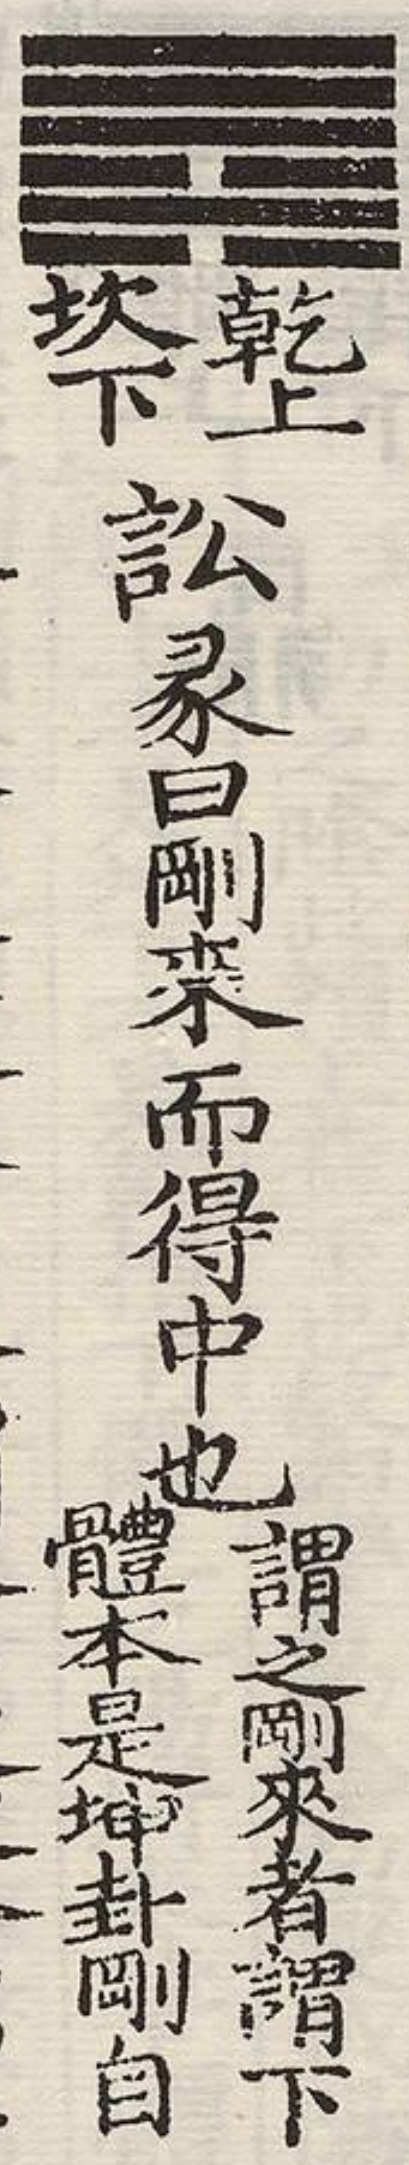 乾上
坎下
訟彖曰剛來而得中也
謂之剛來者謂下
體本是坤卦剛自